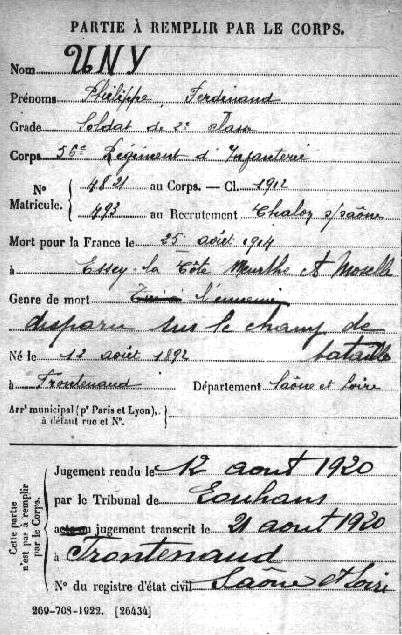 PARTIE À REMPLIR PAR LE CORPS.
Nom UNY
Prénoms Philippe Ferdinand
Grade Soldat de 2e classe
Corps 56e Régiment d'Infanterie
N° Matricule. { 4821 au Corps. — Cl. 1912
493 au Recrutement Chalon s/saône
Mort pour la France le 25 août 1914
à Essey-la Côte Meurthe et Moselle
Genre de mort Tué à l'ennemi
disparu sur le champ de
bataille
Né le 12 août 1892
à Frontenaud Département Saône et Loire
Arrt municipal (pr Paris et Lyon), à défaut rue et N°.
Cette partie n'est pas à remplir par le Corps.
Jugement rendu le 12 août 1920
par le Tribunal de Louhans
acte ou jugement transcrit le 21 août 1920
à Frontenaud
N° du registre d'état civil Saône et Loire
269-708-1922. [26434]